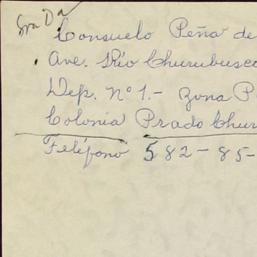 Sra Da
Consuelo Peña de
Ave. Río Churubusco
Dep. Nº 1.- Zona P
Colonia Prado Chur
Teléfono 582-85-